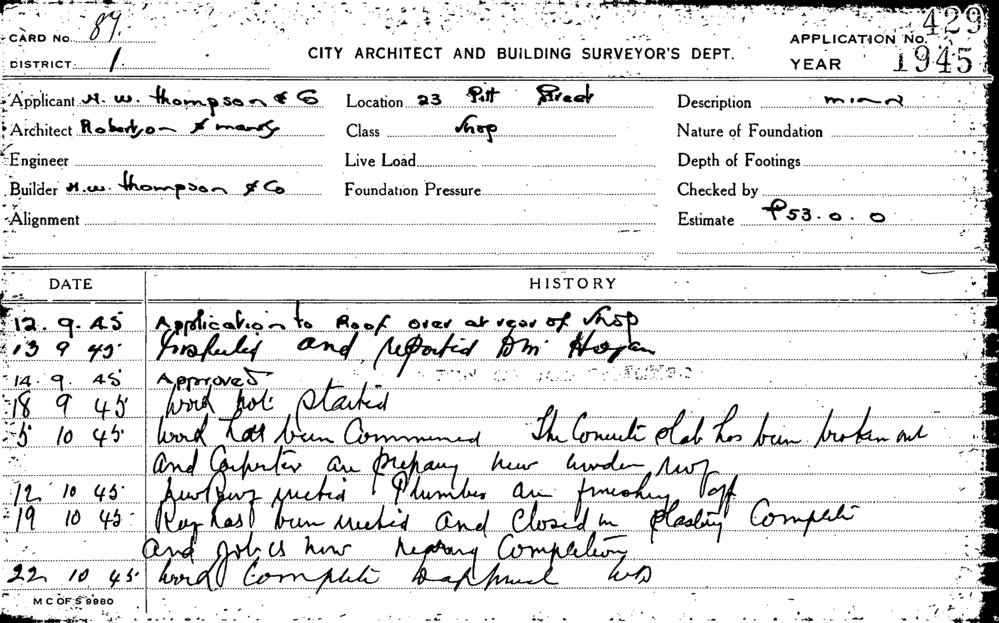 CARD No. 87.
DISTRICT. 1
CITY ARCHITECT AND BUILDING SURVEYOR'S DEPT.
APPLICATION No. 429
YEAR 1945
Applicant H. W. Thompson & Co Location 23 Pitt Street Description minor
Architect Robertson & Marks Class Shop Nature of Foundation
Engineer Live Load Depth of Footings
Builder H.W. Thompson & Co Foundation Pressure Checked by
Alignment Estimate £53.0.0
DATE HISTORY
12. 9. 45 Application to Roof over at rear of Shop
13 9 45 Inspected and reported Hogan
14. 9. 45 Approved
18 9 45 Work not started
5 10 45 Work has been Commenced The Concrete slab has been broken out
and Carpenter are preparing new roof
12 10 45 erected Plumber are finishing off
19 10 45 Roof has been erected and Closed in plastering Complete
and job is now nearing Completion
22 10 45 Work Complete
M C OF S 9980